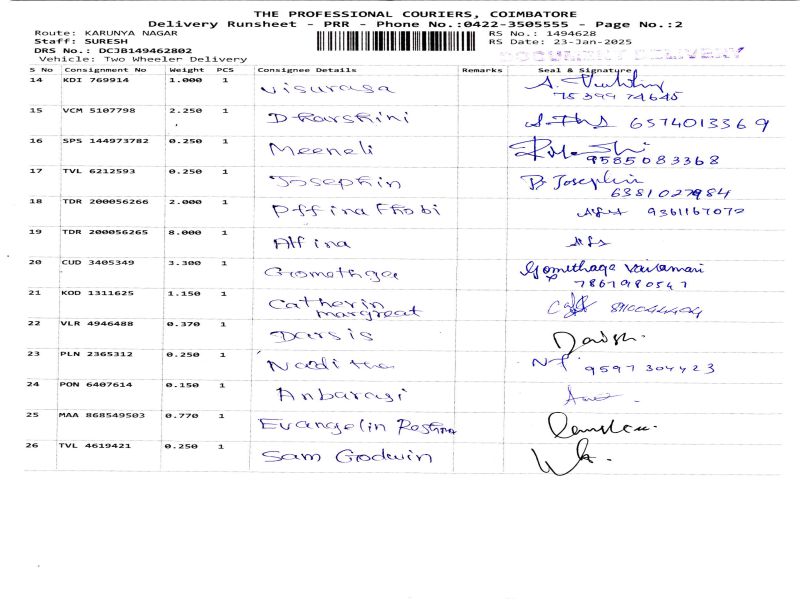 THE PROFESSIONAL COURIERS, COIMBATORE
Delivery Runsheet - PRR - Phone No.:0422-3505555 - Page No.:2
Route: KARUNYA NAGAR RS No.: 1494628
Staff: SURESH RS Date: 23-Jan-2025
DRS No.: DCJB149462802
Vehicle: Two Wheeler Delivery DOCUMENT DELIVERY
S No Consignment No Weight PCS Consignee Details Remarks Seal & Signature
14 KDI 769914 1.000 1 Visurasa A.
75399 74645
15 VCM 5107798 2.250 1 Dharshini 6574013369
16 SPS 144973782 0.250 1 Meeneli
9585083368
17 TVL 6212593 0.250 1 Josephin Josephin
6381027984
18 TDR 200056266 2.000 1 9361167072
19 TDR 200056265 8.000 1 Alfina
20 CUD 3405349 3.300 1 Gomethga Gomethaga
7867980547
21 KOD 1311625 1.150 1 Catherin
margreat
22 VLR 4946488 0.370 1 Darsis
23 PLN 2365312 0.250 1 Naditha 9597304423
24 PON 6407614 0.150 1 Anbarasi
25 MAA 868549503 0.770 1 Evangelin
26 TVL 4619421 0.250 1 Sam Godwin